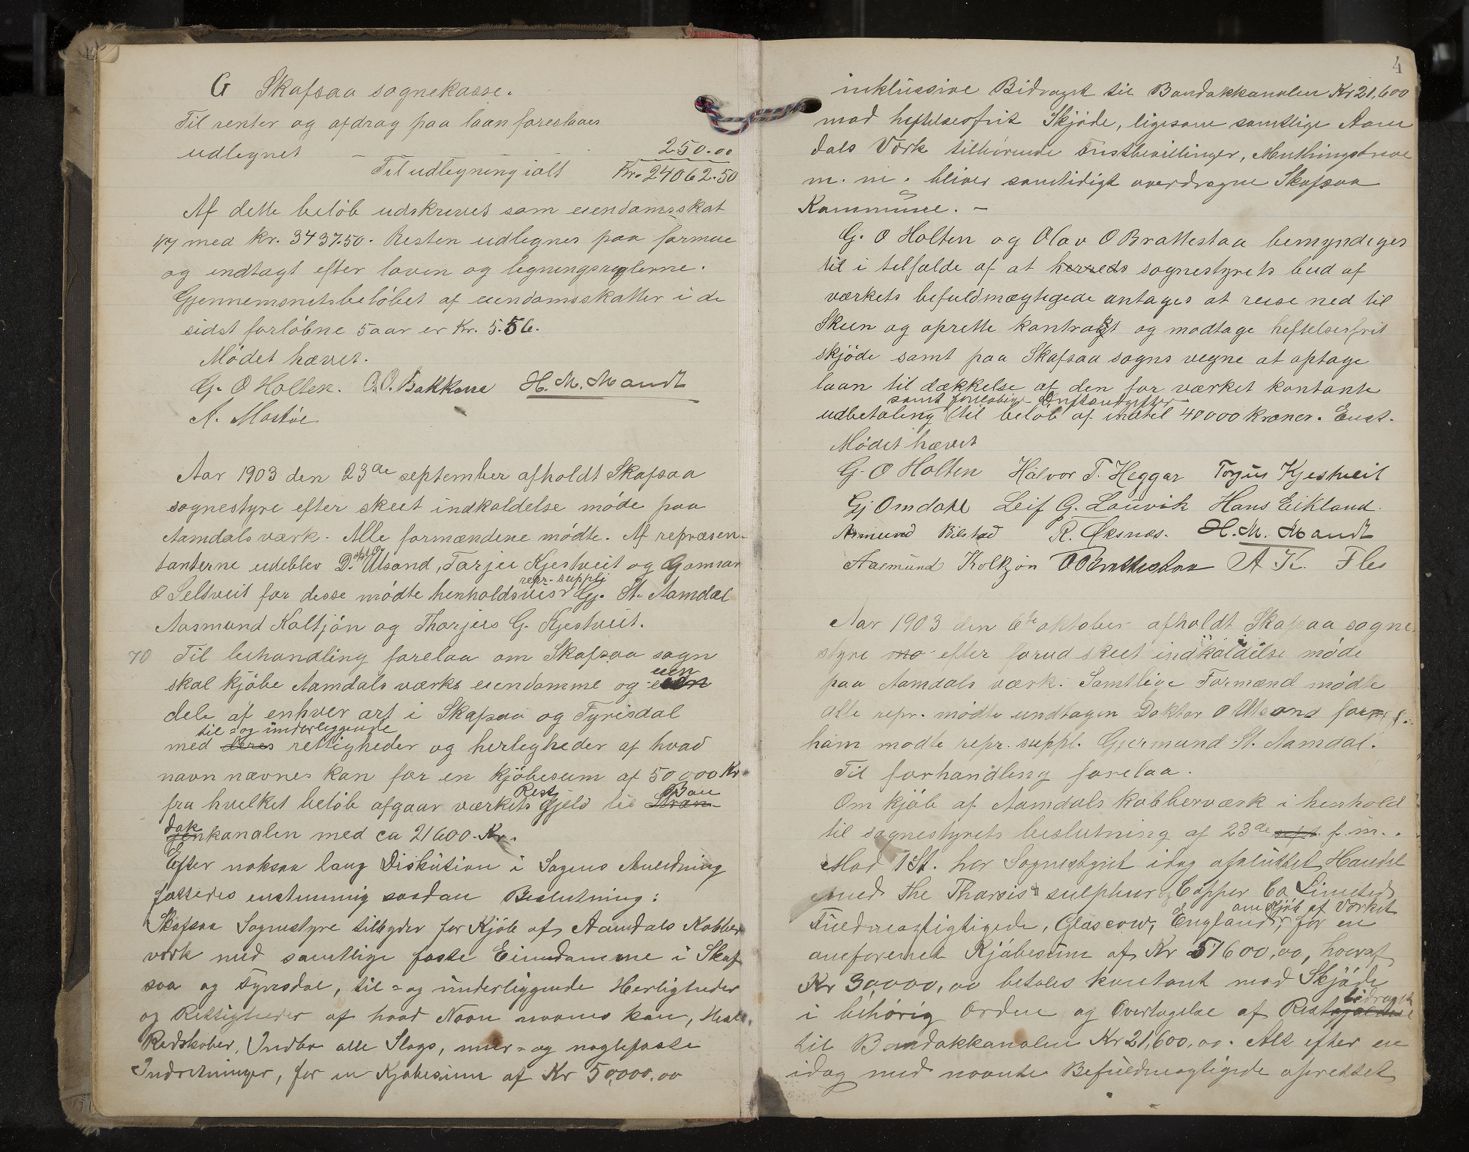 G Skafsaa sognekasse.
Til renter og afdrag paa laan foreslaaes
udlegnet - - - 250.00
Til udlegning ialt Kr. 24062.50
Af dette beløb udskrevet som eiendomsskat
med Kr. 3437.50. Resten udlegnes paa formue
og indtægt efter loven og legningsreglerne.
Gjennemsnitsbeløbet af eiendomsskatter i de
sidst forløbne 5 aar er Kr. 5.56.
Mødet hævet.
G. O Holten. O.O. Bakkene H. M. Mandt
A. Mostøe
Aar 1903 den 23de september afholdt Skafsaa
sognestyre efter skeet indkaldelse møde paa
Aamdals værk. Alle formændene mødte. Af repræsen-
tanterne udeblev Dr. Utsond, Tarjei Kjestveit og Gunnar
O Seltveit for disse mødte henholdsvis repr. suppl. Gj. St. Aamdal
Aasmund Koltjøn og Thorjus G. Kjestveit.
70 Til behandling forelaa om Skafsaa sogn
skal kjøbe Aamdals værks eiendomme og eien
dele af enhver art i Skafsaa og Tyrisdal
med deres til og underliggende rettigheder og herligheder af hvad
navn nævnes kan for en kjøbesum af 50000 Kr
fra hvilket beløb afgaar værkets Rest gjeld til Stran Ban
dakkanalen med ca 21600 Kr.
Efter noksaa lang Diskution i Sagens Anledning
fattedes enstemmig saadan Beslutning:
Skafsaa Sognestyre tilbyder for Kjøb af Aamdals Kobber
værk med samtlige faste Eiendomme i Skaf
saa og Tyrisdal, til- og underliggende Herligheder
og Rettigheder af hvad Navn nævnes kan,
Redskaber, Indbo alle Slags, mur- og naglefaste
Indretninger, for en Kjøbesum af Kr 50,000.00
4
inklussive Bidraget til Bandakkanalen Kr 21,600
mod heftelsesfrit Skjøde, ligesom samtlige Aam
dals Værk tilhørende Fristbevillinger, Muthingsbreve
m. m. bliver samtidigt overdragne Skafsaa
Kommune. -
G. O Holten og Olav O Brattestaa bemyndiges
til i tilfælde af at herreds sognestyrets bud af
værkets befuldmægtigede antages at reise ned til
Skien og oprette kontrakt og modtage heftelsesfrit
skjøde samt paa Skafsaa sogns vegne at optage
laan til dækkelse af den for værket kontante
samt foreløbige Driftsudgifter
udbetaling til beløb af indtil 40000 kroner. Enst.
Mødet hævet
G. O Holten Halvor T. Heggar Torjus Kjestveit
Gj Omdahl Leif G. Lauvik Hans Eikland.
Aanund Bilstad R. Øksnas. H. M. Mandt
Aasmund Koltjøn O Brattestaa A K. Fles
Aar 1903 den 6te oktober afholdt Skafsaa sogne
styre mø efter forud skeet indkaldelse møde
paa Aamdals værk. Samtlige Formænd mødte
alle repr. mødte undtagen Doktor O Utsond for
ham mødte repr. suppl. Gjermund St. Aamdal.
Til forhandling forelaa.
Om kjøb af Aamdals kobberværk i henhold
til sognestyrets beslutning af 23de sept f. m.
Mod 1 St. har Sognestyret idag afsluttet Handel
med The Tharsis sulphur & Copper Co Limiteds
Fuldmægtigede, Glascow, England, om Kjøb af Værket for en
omforenet Kjøbesum af Kr 51600,00, hvoraf
Kr 30,000,00 betales kontant mod Skjøde
i behørig Orden og Overtagelse af Restgjelden bidraget
til Bandakkanalen Kr 21,600,00. Alt efter en
idag med nævnte Befuldmægtigede oprettet